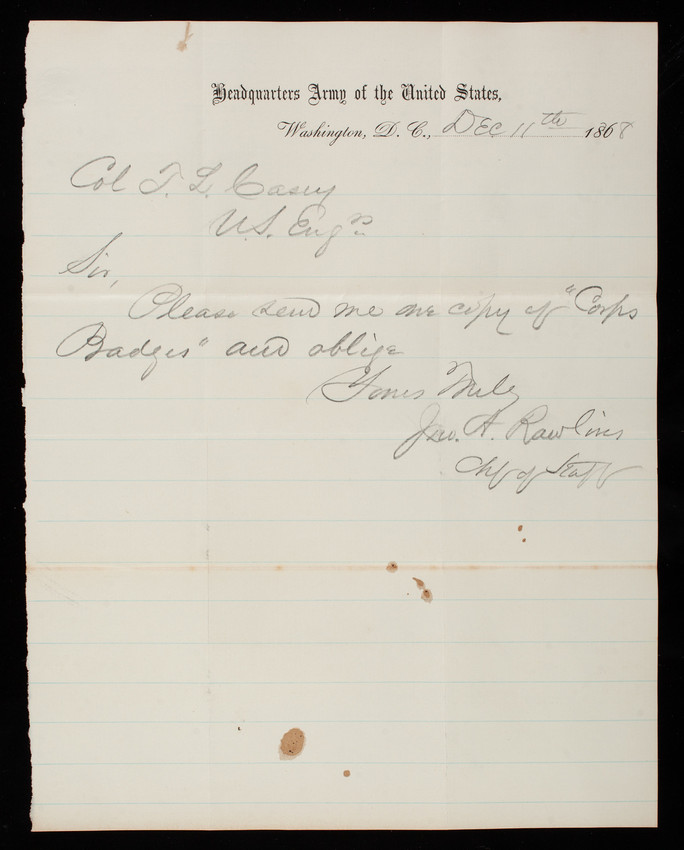 Headquarters Army of the United States,
Washington, D. C., Dec 11th 1868
Col T. L. Casey
U.S. Engrs
Sir,
Please send me one copy of "Corps
Badges" and oblige
Yours Truly
Jno. A. Rawlins
Chf of Staff